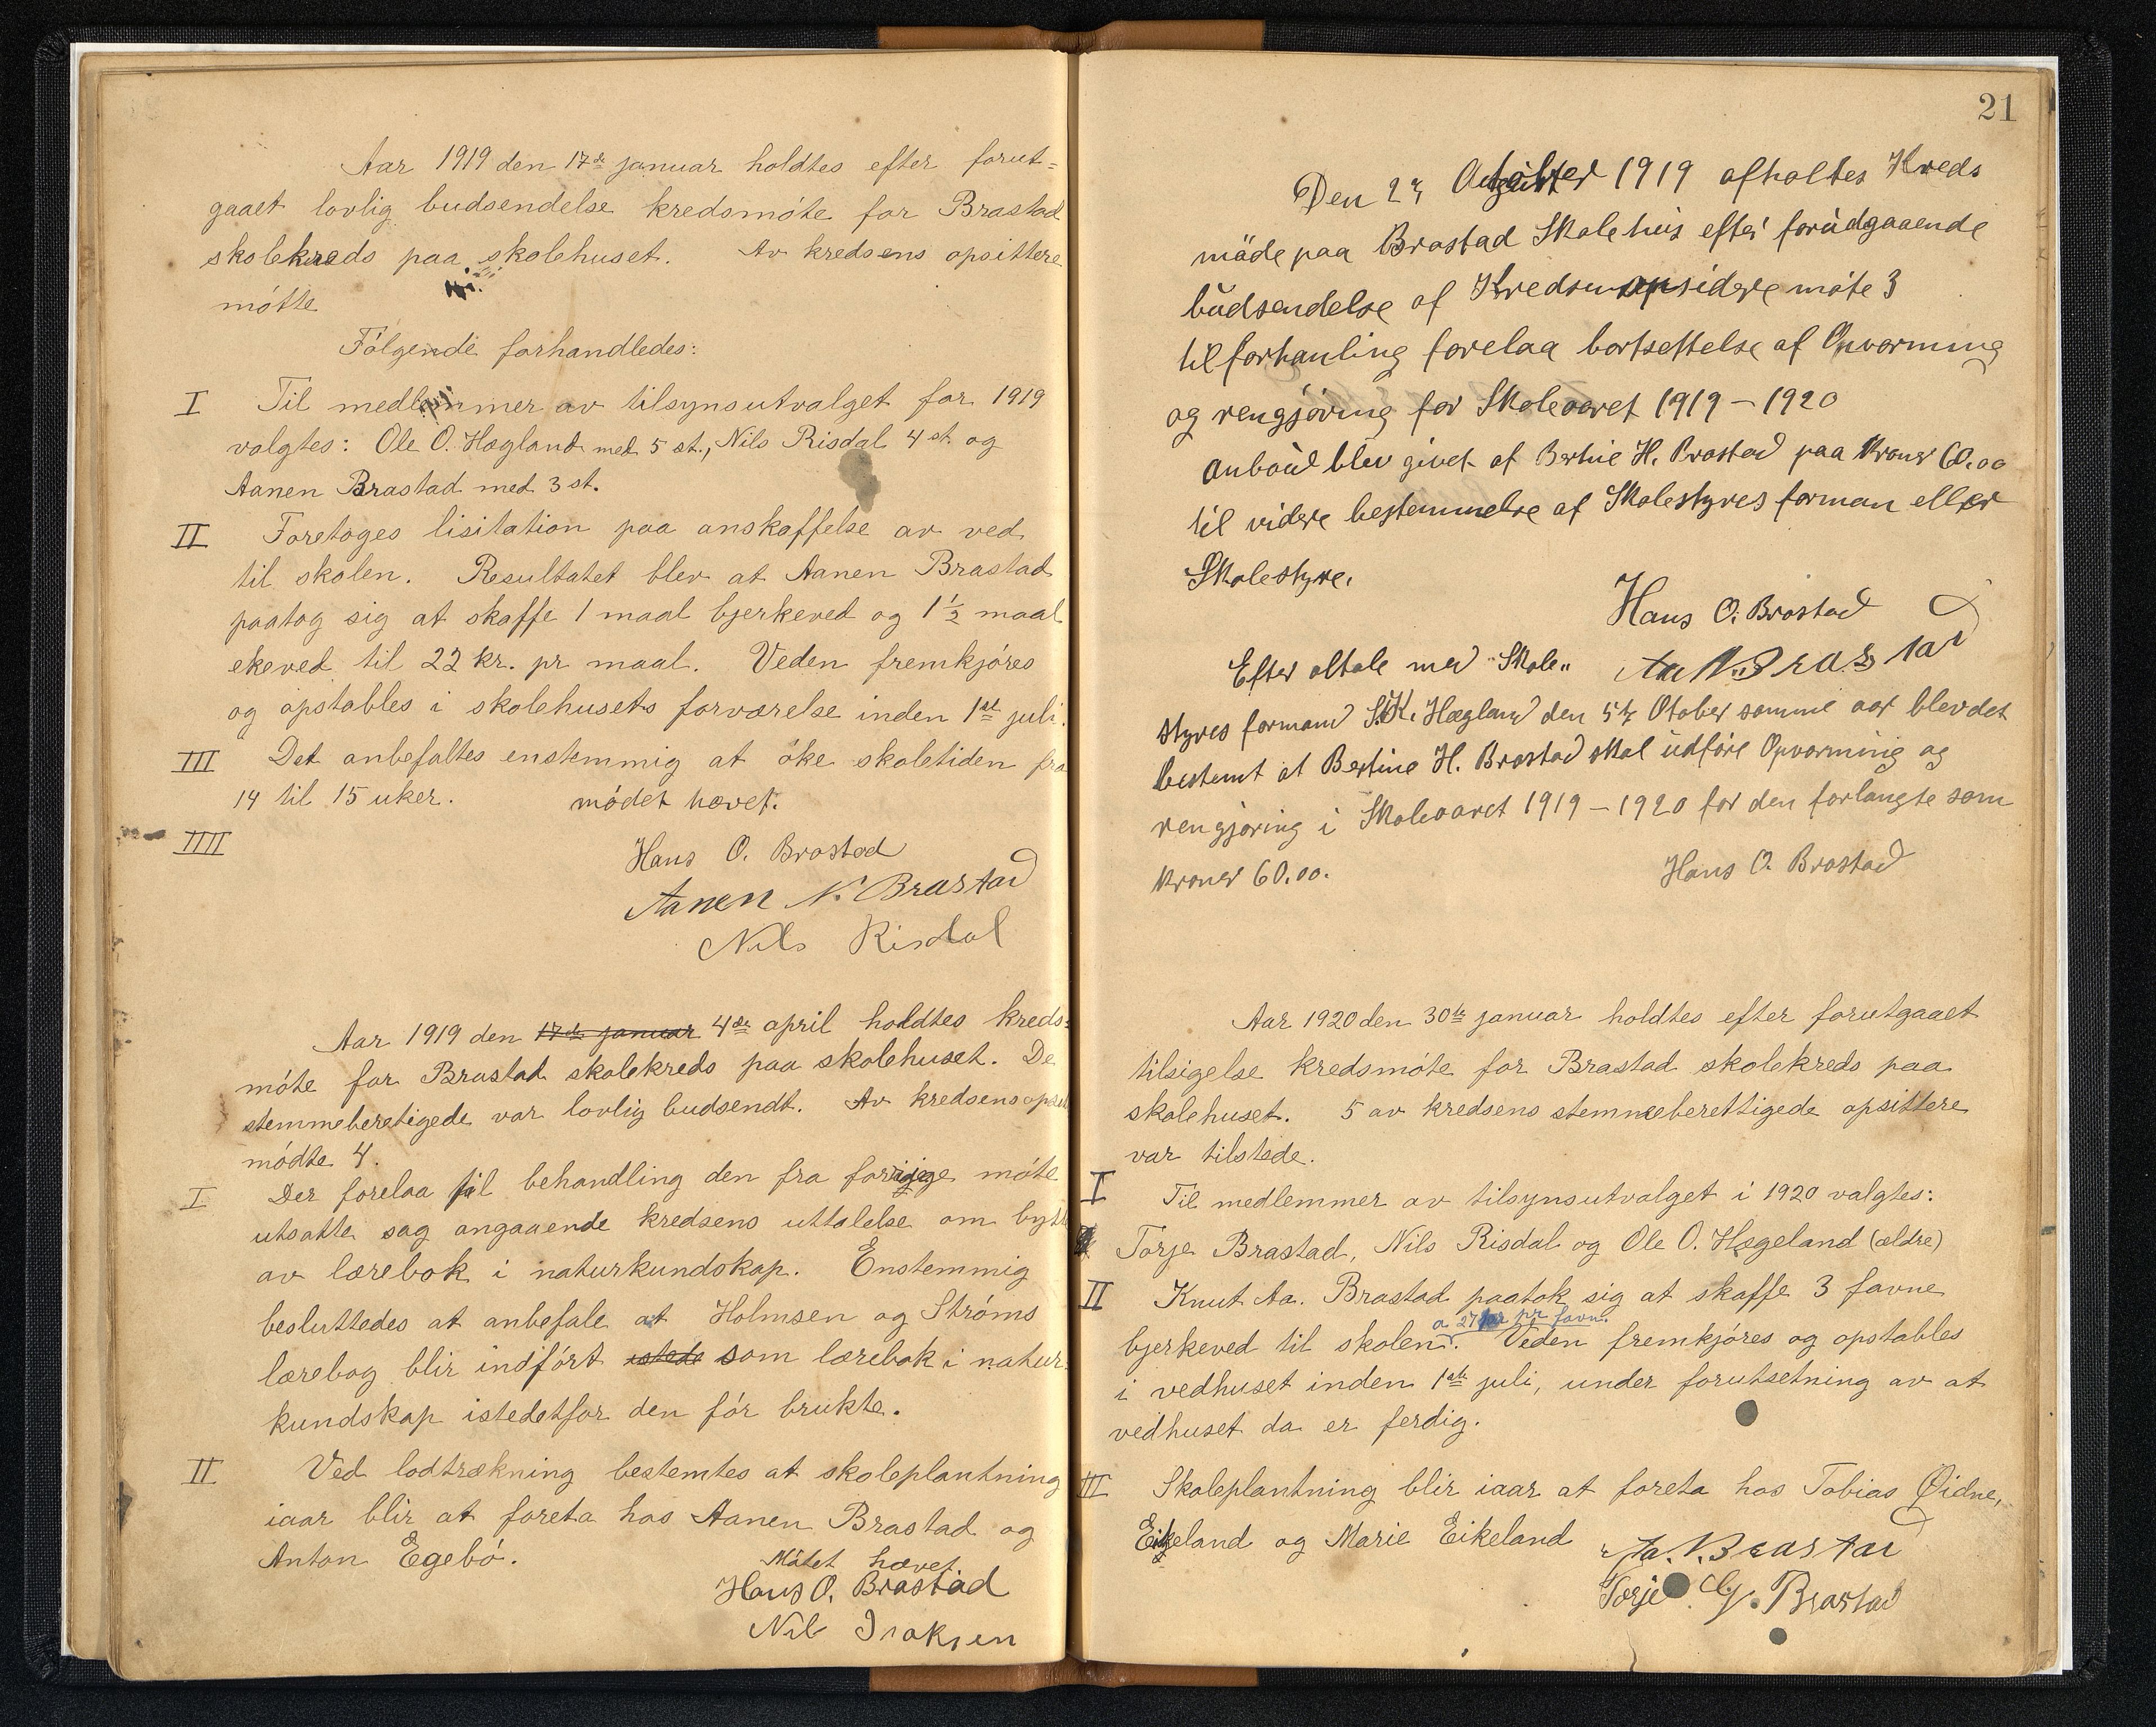 Aar 1919 den 17de januar holdtes efter forut=
gaaet lovlig budsendelse kredsmöte for Brastad
skolekreds paa skolehuset. Av kredsens opsittere
mötte
Fölgende forhandledes:
I Til medlemmer av tilsynsutvalget for 1919
valgtes: Ole O. Hægland med 5 st., Nils Risdal 4 st. og
Aanen Brastad med 3 st.
II Foretoges lisitation paa anskaffelse av ved
til skolen. Resultatet blev at Aanen Brastad
paatog sig at skaffe 1 maal bjerkeved og 1 1/2 maal
ekeved til 22 kr. pr maal. Veden fremkjöres
og opstables i skolehusets forværelse inden 1ste juli.
III Det anbefaltes enstemmig at öke skoletiden fra
14 til 15 uker. mödet hævet.
IIII
Hans O. Brastad
Aanen N. Brastad
Nils Risdal
Aar 1919 den 17de januar 4de april holdtes kreds=
möte for Brastad skolekreds paa skolehuset. De
stemmeberetigede var lovlig budsendt. Av kredsens
mödte 4.
I Der forelaa til behandling den fra forrige möte
utsatte sag angaaende kredsens uttalelse om
av lærebok i naturkundskap. Enstemmig
besluttedes at anbefale at Holmsen og Ströms
lærebog blir indfört istede som lærebok i natur=
kundskap istedetfor den för brukte.
II Ved lodtrækning bestemtes at skoleplantning
iaar blir at foreta hos Aanen Brastad og
Anton Egebö.
Mötet hævet
Hans O. Brastad
Nils Isaksen
21
Den 2 1919 afholtes Kreds
möde paa Brastad Skolehus efter forudgaaende
budsendelse af Kredsens opsidere möte 3
til forhanling forelaa bortsettelse af Opvarming
og rengjöring for Skoleaaret 1919 – 1920
Anboud blev givet af Bertine H. Brastad paa Kroner 60.00
til videre bestemmelse af Skolestyres forman eller
Skolestyre.
Hans O. Brastad
Aa N. Brastad
Efter altale med "Skole"
styres formand S.K. Hægland den 5te Otober samme aar blev det
bestemt at Bertine H. Brastad skal udföre Opvarming og
rengjöring i Skoleaaret 1919 – 1920 for den forlangte som
kroner 60.00.
Hans O. Brastad
Aar 1920 den 30te januar holdtes efter forutgaaet
tilsigelse kredsmöte for Brastad skolekreds paa
skolehuset. 5 av kredsens stemmeberettigede opsittere
var tilstede.
I Til medlemmer av tilsynsutvalget i 1920 valgtes:
Torje Brastad, Nils Risdal og Ole O. Hægeland (ældre)
II Knut Aa. Brastad paatok sig at skaffe 3 favne
a 27 kr pr favn.
bjerkeved til skolen. Veden fremkjöres og opstables
i vedhuset inden 1ste juli, under forutsetning av at
vedhuset da er ferdig.
III Skoleplantning blir iaar at foreta hos Tobias Øidne,
Eikeland og Marie Eikeland
Aa. N. Brastad
Torje G. Brastad